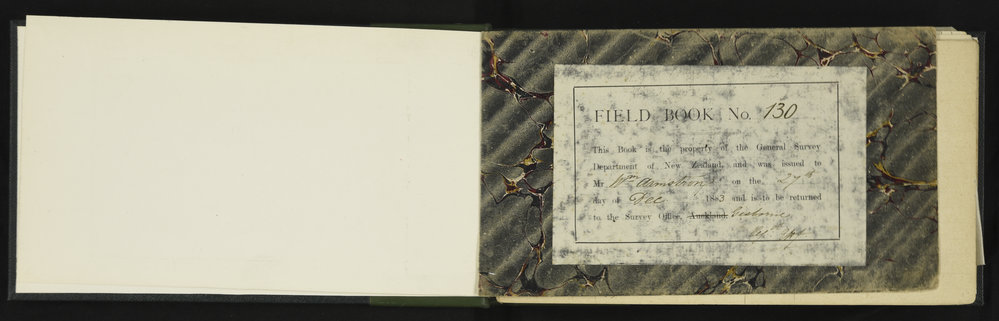 FIELD BOOK No. 130
This Book is the property of the General Survey
Department of New Zealand, and was issued to
Mr Wm Armstron on the 27th
day of Dec 1883 and is to be returned
to the Survey Office, Auckland,